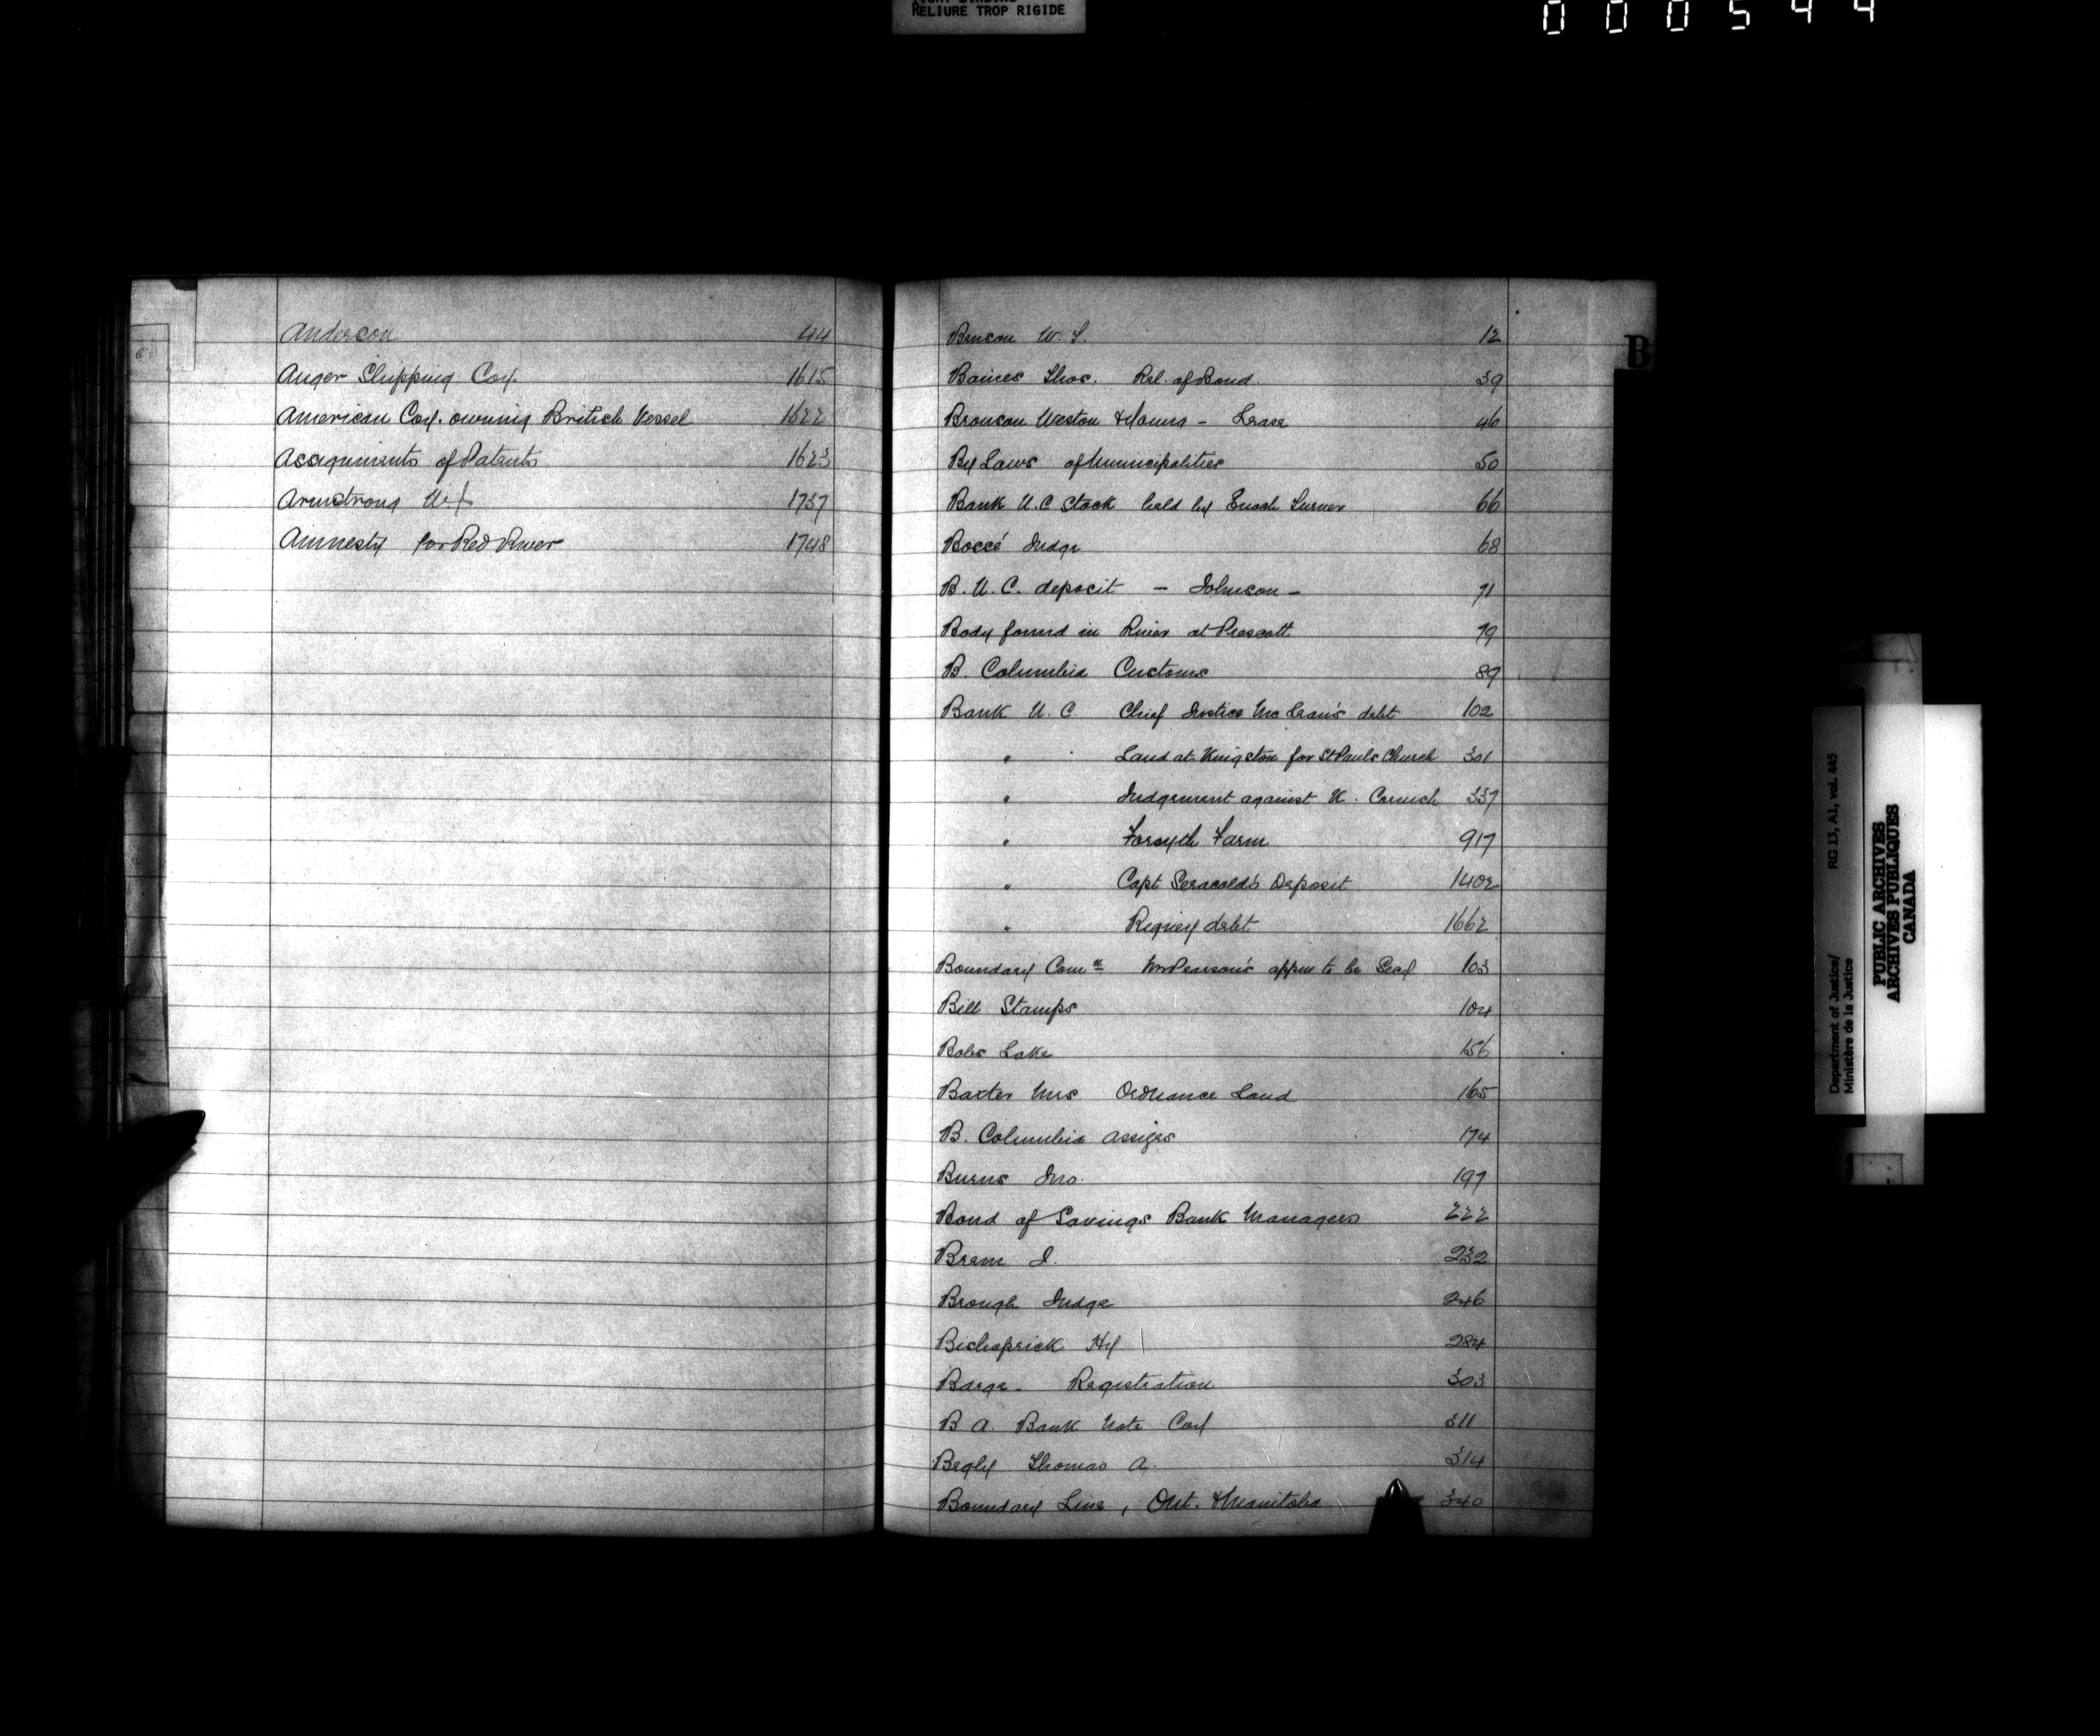 RELIURE TROP RIGIDE
000544
Anderson 44
Auger Shipping Coy. 1615
American Coy. owning British Vessel 1622
Assignments of Patents 1623
Armstrong 1737
Amnesty for Red River 1748
B
Benson W. S. 12
Baines Thos. Rel. of Bond 39
Bronson Weston & Young - Lease 46
By Laws of Municipalities 50
Bank U.C Stock held by Enoch Turner 66
Bossé Judge 68
B. U. C. deposit - Johnson - 71
Body found in River at Prescott 79
B. Columbia Customs 89
Bank U. C. Chief Justice McLean's debt 102
" Land at Kingston for St Pauls Church 301
" Judgement against K. 337
" Forsyth Farm 917
" Capt Deposit 1402
" Rigney debt 1662
Boundary Comn Mr Pearson's appm to be Secy 103
Bill Stamps 104
Bobs Lake 156
Baxter Mrs Ordnance Land 165
B. Columbia assizes 174
Burns Jno. 197
Bond of Savings Bank Managers 222
Bram J. 232
Brough Judge 246
Bishoprick Hy 284
Barge - Registration 303
B A. Bank Note Coy 311
Begly Thomas A. 314
Boundary Line, Ont. & Manitoba 340
Department of Justice/ RG 13, A1, vol. 445
Ministère de la Justice
PUBLIC ARCHIVES
ARCHIVES PUBLIQUES
CANADA